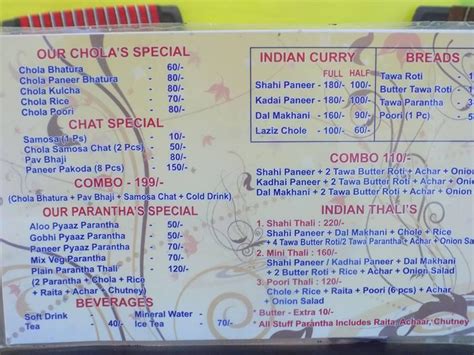 OUR CHOLA'S SPECIAL
Chola Bhatura - 60/-
Chola Paneer Bhatura - 80/-
Chola Kulcha - 80/-
Chola Rice - 70/-
Chola Poori - 80/-
CHAT SPECIAL
Samosa (1 Ps) - 10/-
Chola Samosa Chat (2 Pcs) - 50/-
Pav Bhaji - 80/-
Paneer Pakoda (8 Pcs) - 150/-
COMBO - 199/-
(Chola Bhatura + Pav Bhaji + Samosa Chat + Cold Drink)
OUR PARANTHA'S SPECIAL
Aloo Pyaaz Parantha
Gobhi Pyaaz Parantha
Paneer Pyaaz Parantha
Mix Veg Parantha
Plain Parantha Thali - 120/-
(2 Parantha + Chola + Rice
+ Raita + Achar + Chutney)
BEVERAGES
Soft Drink Mineral Water
Tea - 40/- Ice Tea - 70/-
INDIAN CURRY
FULL HALF
Shahi Paneer - 180/- 100/-
Kadai Paneer - 180/- 100/-
Dal Makhani - 160/- 90/-
Laziz Chole - 100/- 60/-
BREADS
Tawa Roti
Butter Tawa Roti
Tawa Parantha
Poori (1 Pc)
COMBO 110/-
Shahi Paneer + 2 Tawa Butter Roti + Achar + Onion
Kadhai Paneer + 2 Tawa Butter Roti + Achar + Onion
Dal Makhani + 2 Tawa Butter Roti + Achar + Onion
INDIAN THALI'S
1. Shahi Thali : 220/-
Shahi Paneer + Dal Makhani + Chole + Rice
+ 4 Tawa Butter Roti/2 Tawa Parantha + Achar + Onion
2. Mini Thali : 160/-
Shahi Paneer / Kadhai Paneer + Dal Makhani
+ 2 Tawa Butter Roti + Rice + Achar + Onion Salad
3. Poori Thali : 120/-
Chole + Rice + Raita + Poori (6 pcs) + Achar
+ Onion Salad
* Butter - Extra 10/-
* All Stuff Parantha Includes Raita, Achaar, Chutney